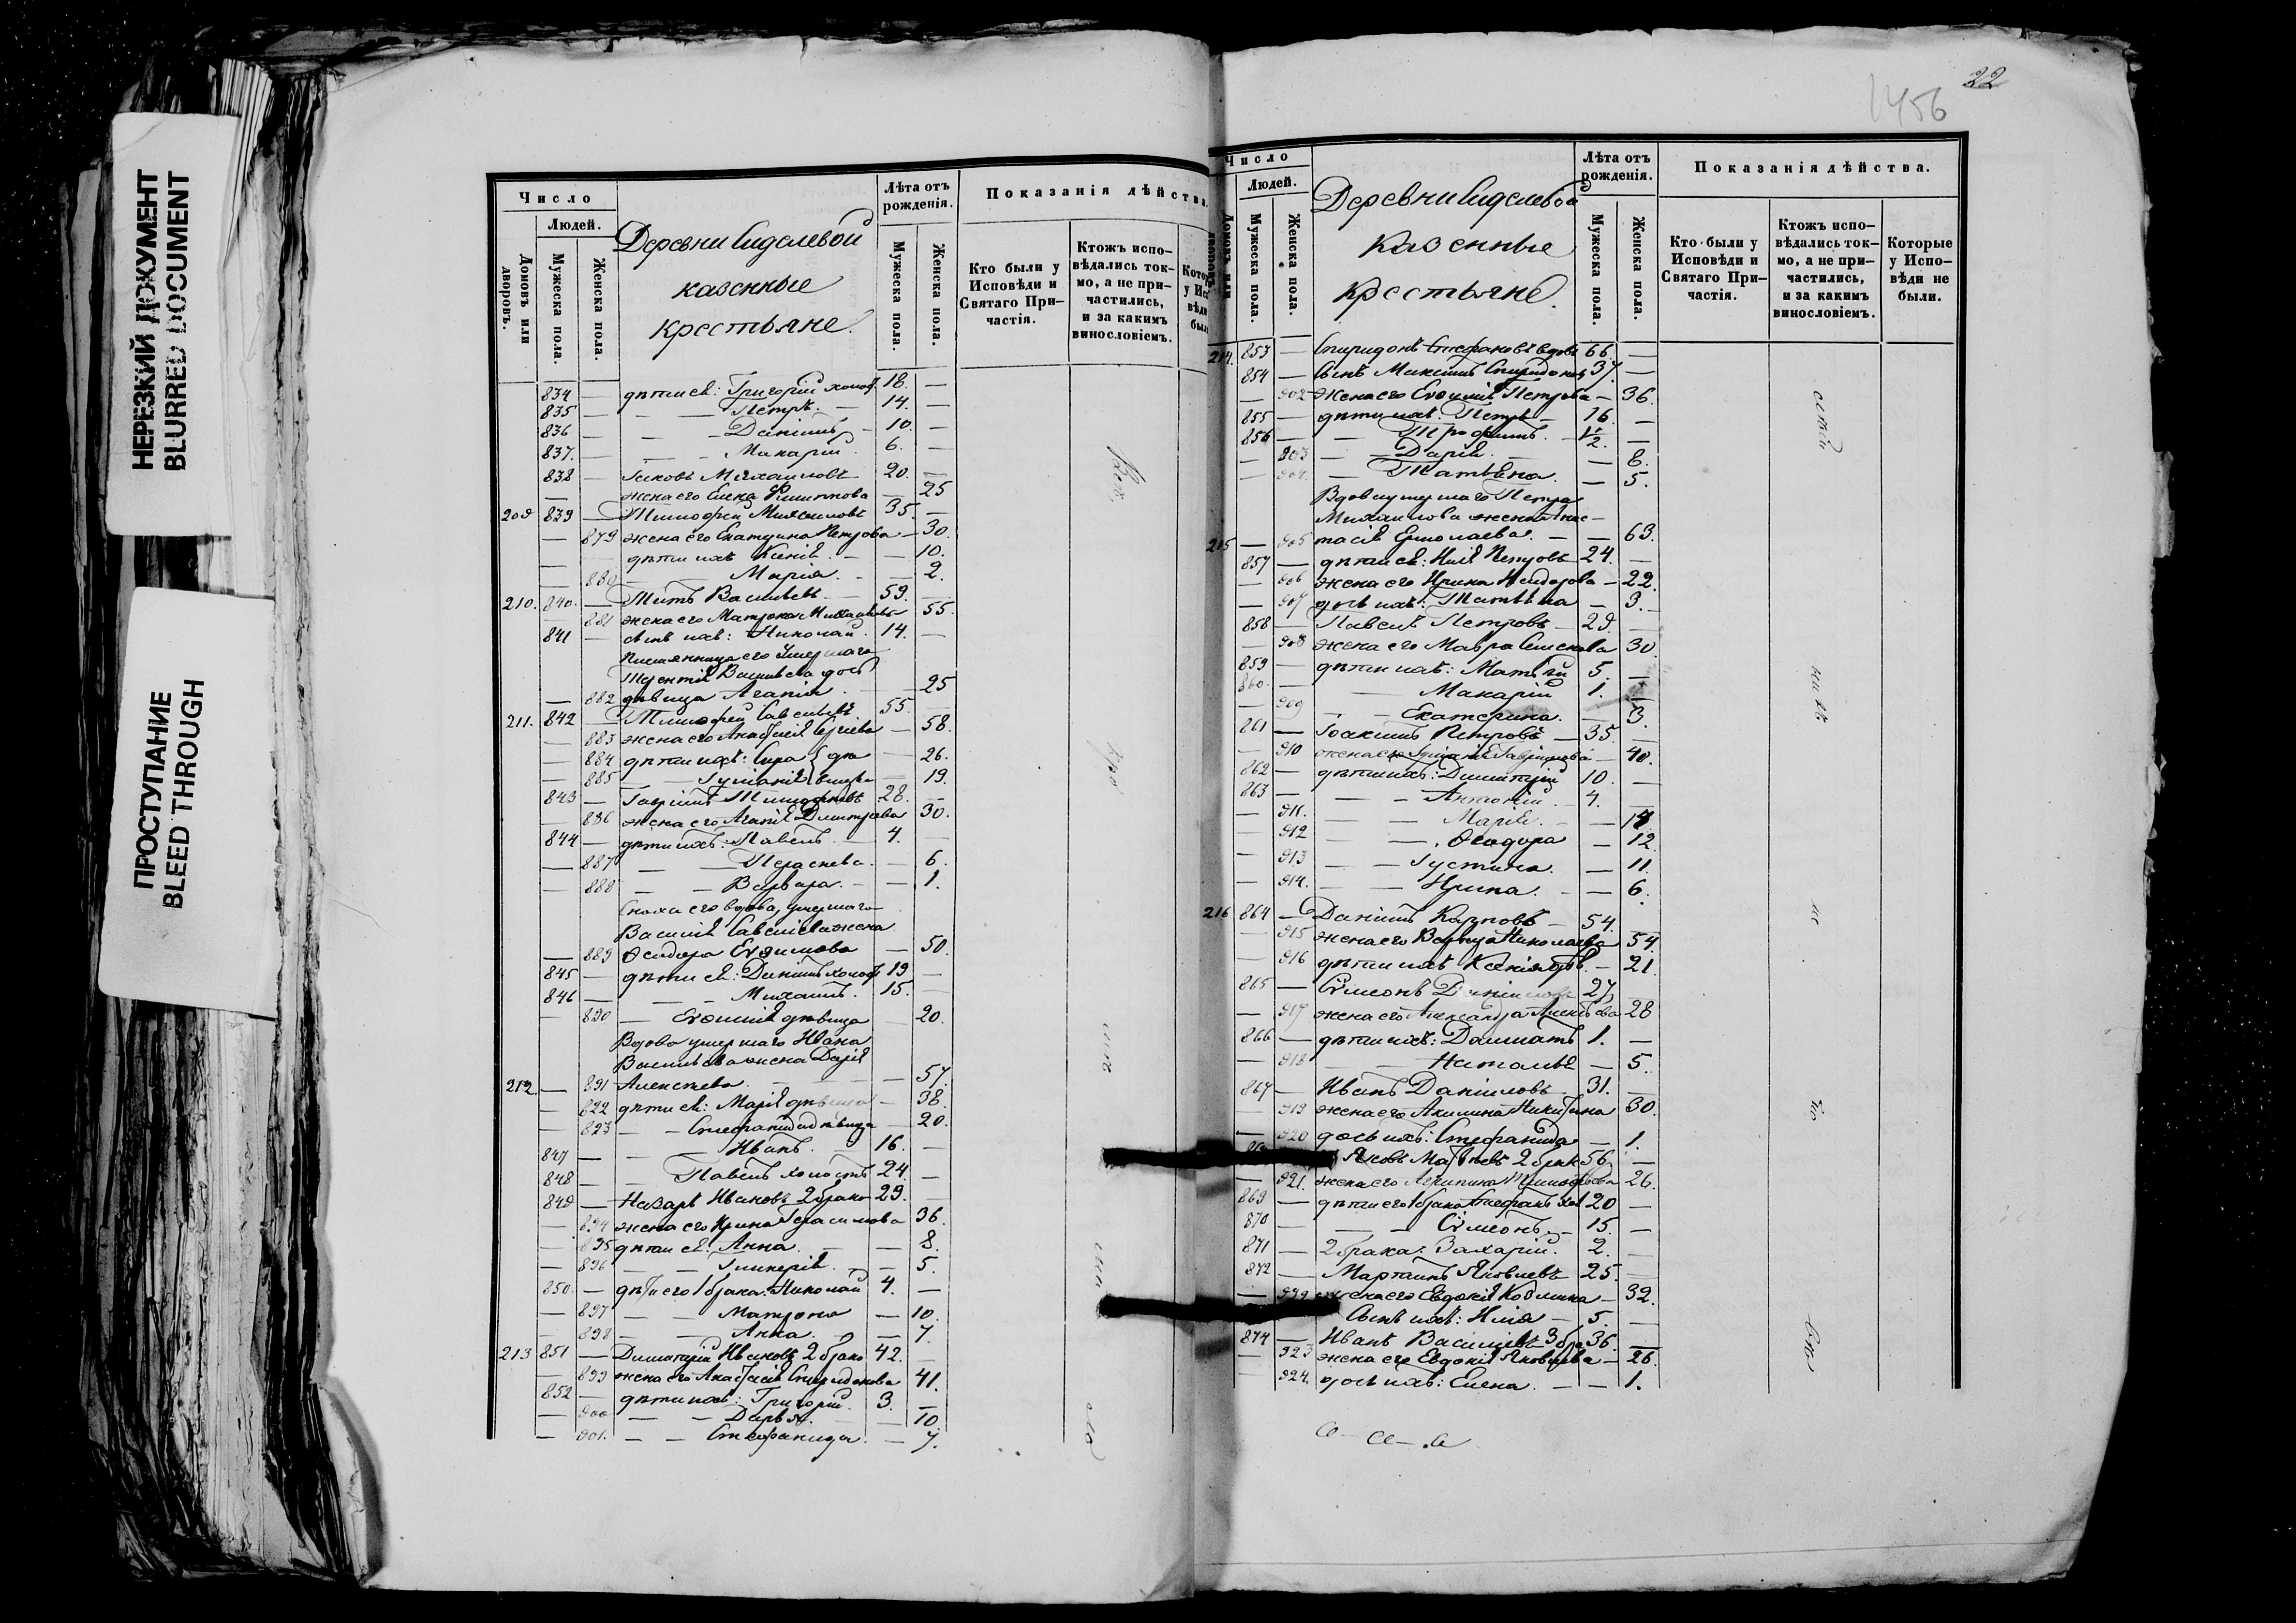 НЕРЕЗКИЙ ДОКУМЕНТ
BLURRED DOCUMENT
ПРОСТУПАНИЕ
BLEED THROUGH
Число
Людей.
Домовъ или дворовъ.
Мужеска пола.
Женска пола.
Деревни Сиделевой
казенные
крестьяне.
Лѣта отъ рожденія.
Мужеска пола.
Женска пола.
Показанія дѣйства.
Кто были у Исповѣди и Святаго Причастія.
Ктожъ исповѣдались токмо, а не причастились, и за какимъ винословіемъ.
834 — дѣти ея: Григорій холос. 18. —
835 — — — Петръ. — 14. —
836 — — — Даніилъ — 10. —
837. — — — Макарій 6. —
838 — Іаковъ Михаиловъ 20. —
— жена его Елена Филиппова — 25
209 839 — Тимофей Михаиловъ 35. —
— 879 жена его Екатерина Петрова — 30.
— дѣти ихъ Ксенія — — 10.
— 880 — Марія. — — 2.
210. 840. — Титъ Васильевъ — 59. —
— 881 жена его Матрона Михаилова 55.
841 — сынъ ихъ: Николай. 14. —
Племянница его умершаго
Терентія Васильева дочь
— 882 дѣвица Агапія — 25
211. 842 — Тимофей Савельевъ 55. —
— 883 жена его Анастасія Сергіева — 58.
— 884 дѣти ихъ: Сира дѣ — 26.
— 885 — Іуліанія вицы — 19.
843 — Гавріилъ Тимофеевъ 28. —
— 886 жена его Агапія Димитріева 30.
844 — дѣти ихъ: Павелъ — 4.
— 887 — — Параскева. — 6.
— 888 — — Варвара. — — 1.
Сноха его вдова, умершаго
Василія Савельева жена
— 889 Ѳеодора Евѳимова — 50.
845 — дѣти ея: Даніилъ холост 19 —
846 — — — Михаилъ. 15. —
— 890 — Евѳимія дѣвица — 20.
Вдова умершаго Ивана
Васильева жена Дарія
212. — 891 Алексѣева. — — 57.
— 892 дѣти ея: Марія дѣвица — 38
— 893 — — Стефанида дѣвица — 20.
847 — — — Иванъ. 16. —
848 — — Павелъ холостъ 24. —
849 — Назаръ Ивановъ 2 брака 29. —
— 894 жена его Ирина Герасимова 36.
— 895 дѣти ея: Анна. — — 8.
— 896 — — Гликерія. — — 5.
850. — дѣти его 1 брака: Николай 4. —
— 897 — — Матрона — 10.
— 898 — — Анна. — 7.
213 851 — Димитрій Ивановъ 2 брака 42. —
— 899 жена его Анастасія Спиридонова 41.
852 — дѣти ихъ: Григорій. 3. —
— 900 — — Дарья. — 10
— 901. — — Стефанида. — 7.
1456
22
Число
Людей.
Мужеска пола.
Женска пола.
Деревни Сиделевой
казенные
крестьяне.
Лѣта отъ рожденія.
Мужеска пола.
Женска пола.
Показанія дѣйства.
Кто были у Исповѣди и Святаго Причастія.
Ктожъ исповѣдались токмо, а не причастились, и за какимъ винословіемъ.
Которые у Исповѣди не были.
214. 853 — Спиридонъ Стефановъ вдовъ 66. —
854 — Сынъ Максимъ Спиридоновъ 37. —
— 902 жена его Евѳимія Петрова — 36.
855 — дѣти ихъ: Петръ — 16. —
856 — — Трофимъ. — 1/2. —
— 903 — — Дарія — — 8.
— 904. — — Татьяна. — 5.
Вдова умершаго Петра
Михаилова жена Анас-
215 — 905 тасія Ермолаева. — — 63.
857 — дѣти ея: Илія Петровъ 24. —
— 906 жена его Ирина Исидорова — 22.
— 907 дочь ихъ: Татьяна — 3.
858 — Павелъ Петровъ — 29. —
— 908 жена его Мавра Семенова 30.
859 — дѣти ихъ: Матѳій 5. —
860. — — Макарій 1. —
— 909 — — Екатерина. — 3.
861 — Іоакимъ Петровъ — 35. —
— 910 жена его Іуліанія Гавріилова — 40.
862 — дѣти ихъ: Димитрій 10. —
863 — — — Антоній. — 4. —
— 911. — — Марія. — — 14.
— 912 — — Ѳеодора — 12.
— 913 — — Іустина. — 11.
— 914. — — Ирина. — — 6.
216 864 — Даніилъ Карповъ — 54. —
— 915 жена его Варвара Николаева 54.
— 916 дѣти ихъ Ксенія дѣв. — 21.
865 — Сѵмеонъ Даніиловъ 27. —
— 917 жена его Александра Алексѣева 28
866 — дѣти ихъ: Далматъ 1. —
— 918 — — Наталья — 5.
867 — Иванъ Даніиловъ — 31. —
— 919 жена его Акилина Никитина 30.
— 920 дочь ихъ: Стефанида — 1.
Яковъ Матѳеевъ 2 брак 56. —
— 921. жена его Агрипина Тимофеева 26.
869 — дѣти его 1 брака Стефанъ хол 20 —
870 — — — Сѵмеонъ. — 15. —
871 — 2 брака: Захарій. 2. —
872 — Мартинъ Яковлевъ 25. —
жена его Евдокія Козмина — 32.
Сынъ ихъ: Илія — 5. —
874 — Иванъ Васильевъ 3 бра 36. —
— 923 жена его Евдокія Яковлева — 26.
— 924. дочь ихъ: Елена. — — 1.